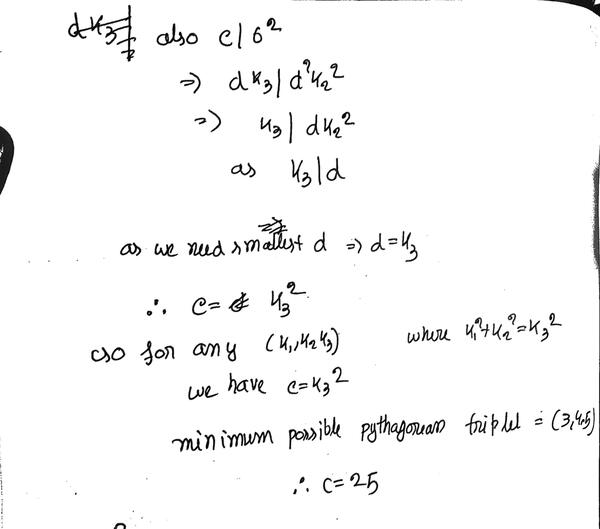 also c|b²
⇒ dk₃|d²k₂²
⇒ k₃|dk₂²
as k₃|d
as we need smallest d ⇒ d=k₃
∴ c= k₃²
so for any (k₁,k₂k₃) where k₁²+k₂²=k₃²
we have c=k₃²
minimum possible pythagorean triplet = (3,4,5)
∴ c=25